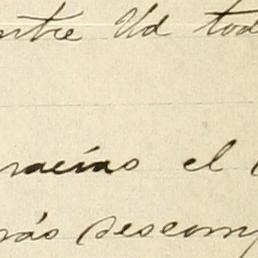 ntre Ud tod
racias el
más descom